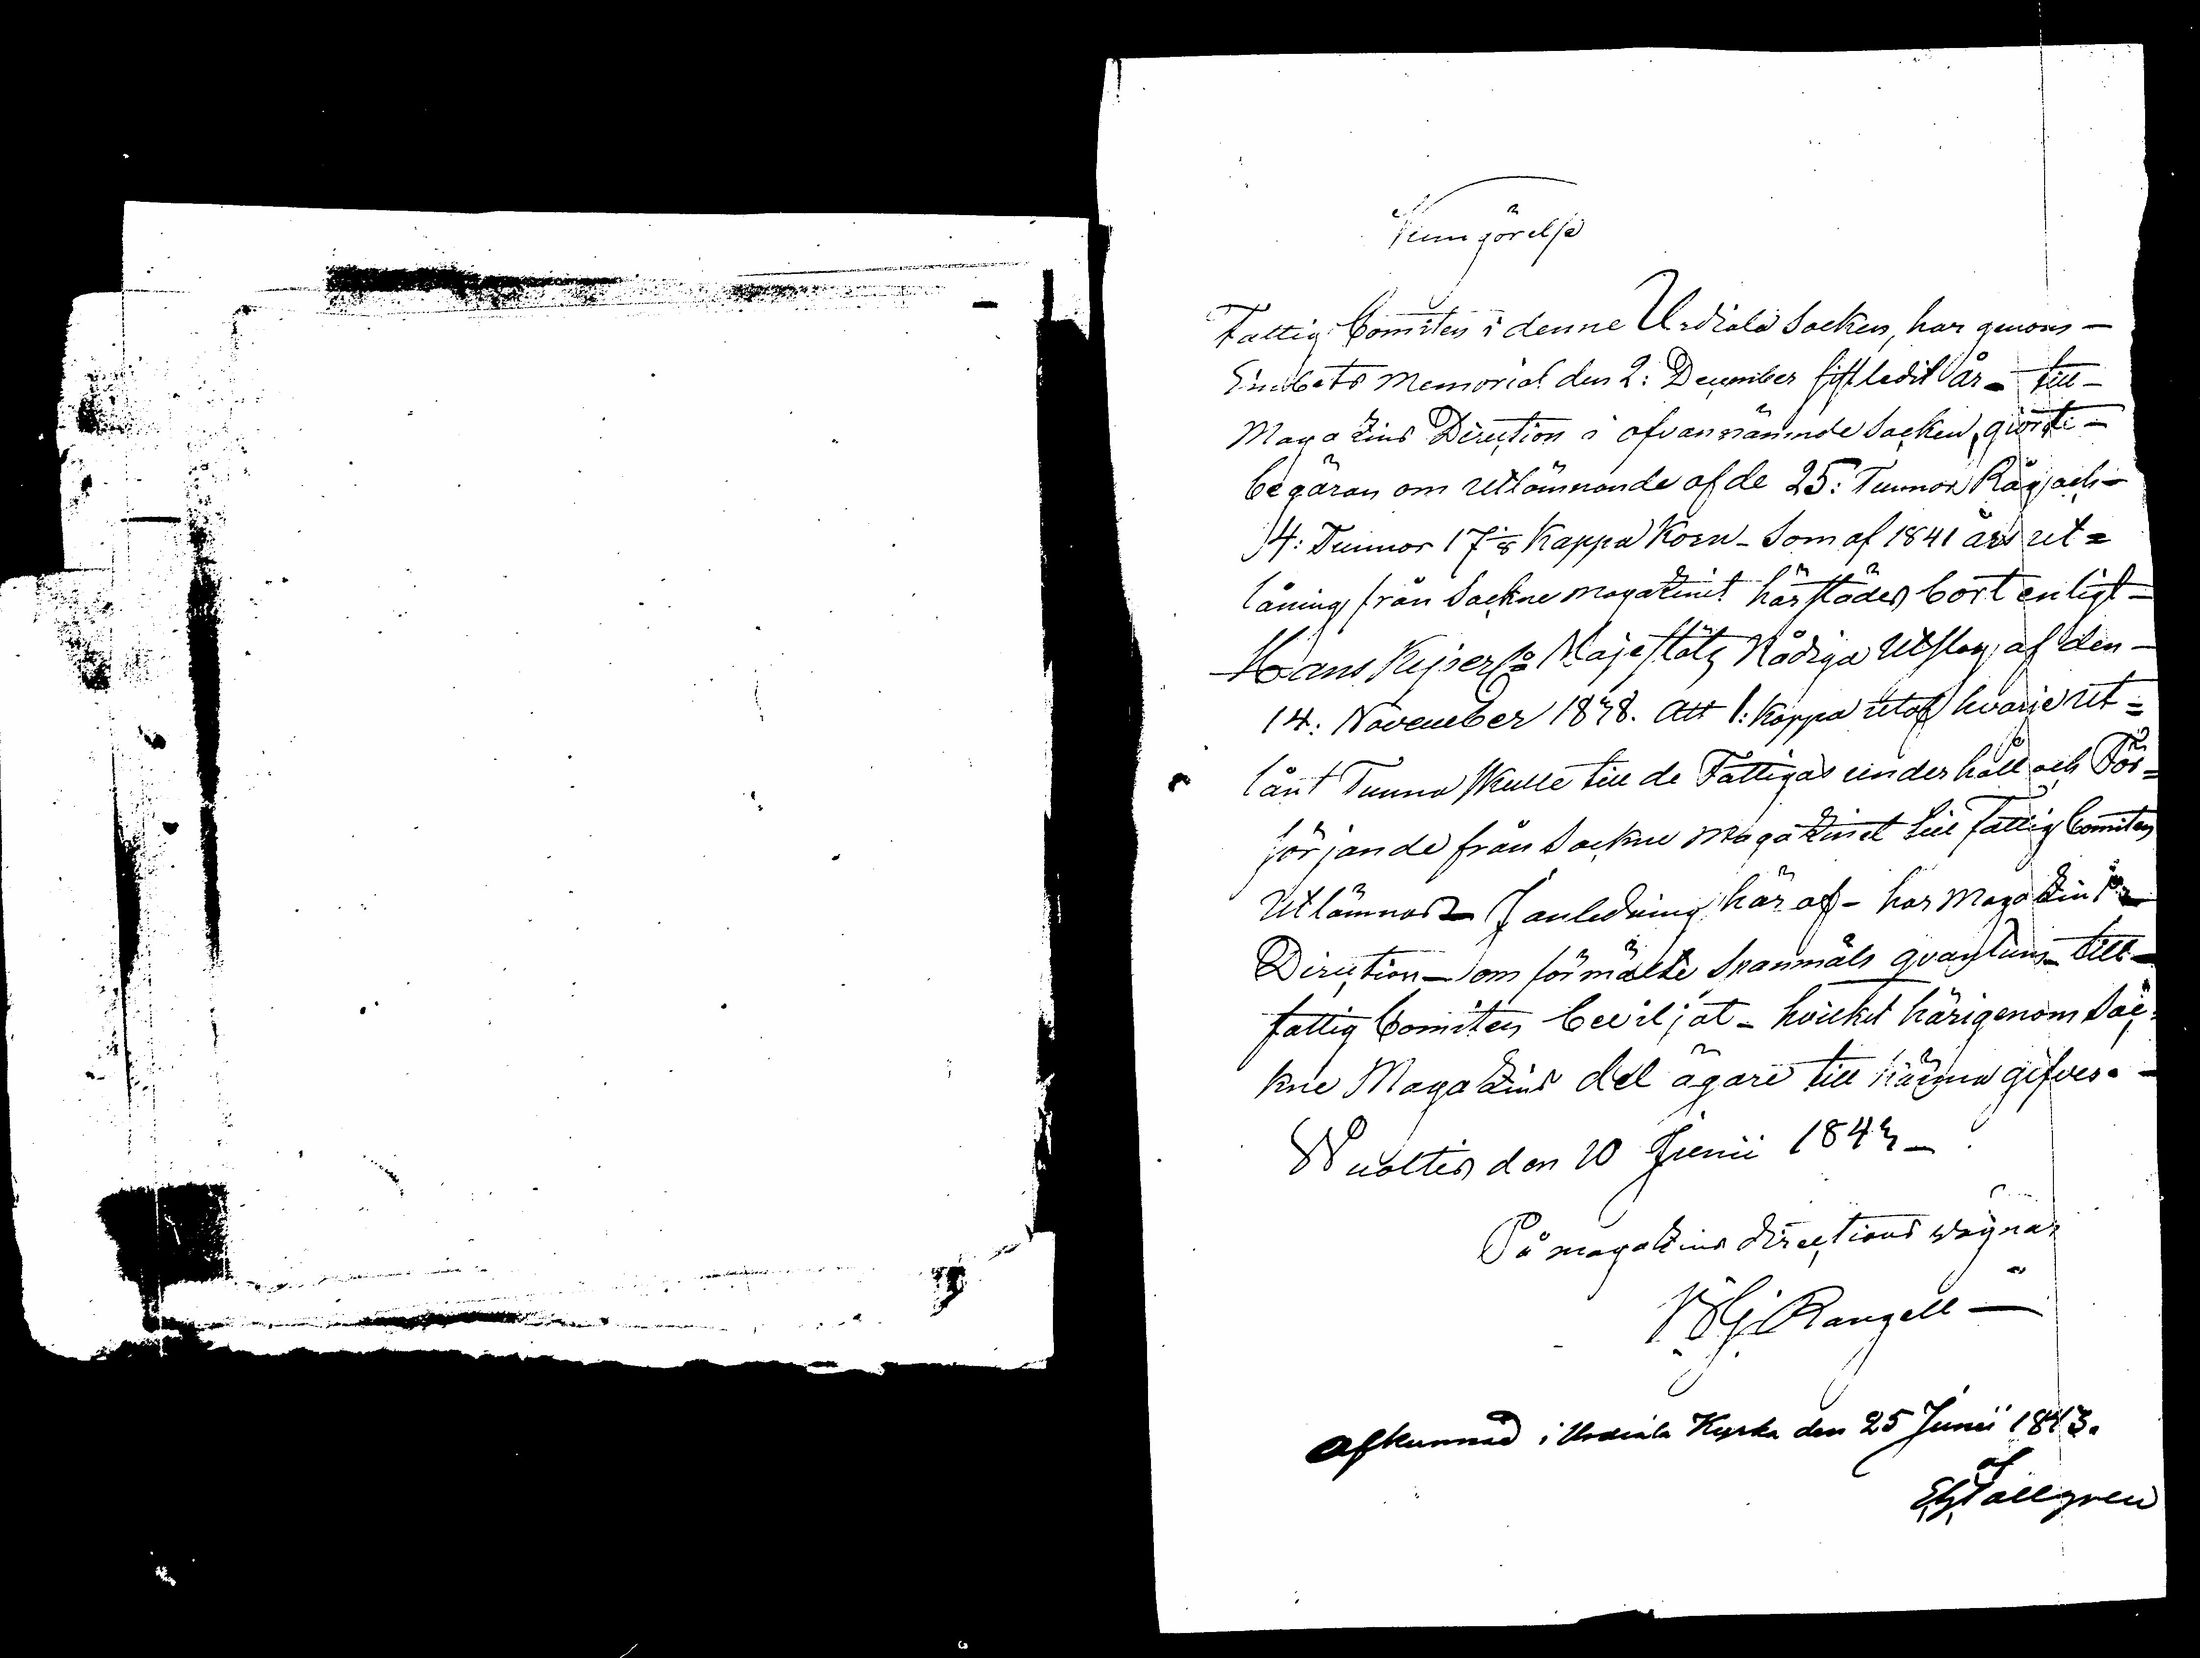 Kungörelse
Fattig Comiten i denne Urdiala Socken, har genom -
Embets Memorial den 2: December sistledit år - till -
Magazins Direction i ofvannämnde Socken, giort -
begäran om utlämnande af de 25: Tunnor Råg och -
4: Tunnor 17 1/8 Kappa Korn - Som af 1841 års ut =
låning från Sockne magazinet härstädes bort enligt -
Hans Kejserl: Majestäts Nådiga Utslag af den -
14: November 1838. Att 1: kappa utaf hvarje ut =
lånt Tunna skulle till de Fattigas underhåll och För =
sörjande från Sockne Magazinet till Fattig Comiten
Utlämnas - I anledning häraf - har Magazins -
Direction - om förmälte Spanmåls qvantum - till -
fattig Comiten beviljat - hvilket härigenom Såc=
kne Magazins del ägare till känna gifves. -
Wuoltis den 20 Junii 1843 -
På magazins directions vägnar
Rangell -
Afkunnad i Urdiala Kyrka den 25 Junii 1843.
af
Tallgren